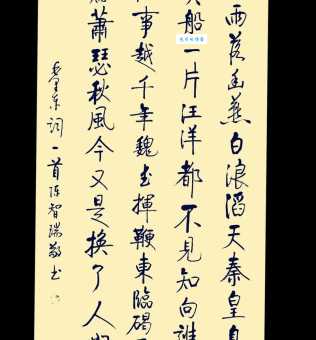 雨落幽燕白浪滔天秦皇
船一片汪洋都不見知向誰
事越千年魏武揮鞭東臨碣
蕭瑟秋風今又是換了人
毛澤東詞一首陳智瑞敬书